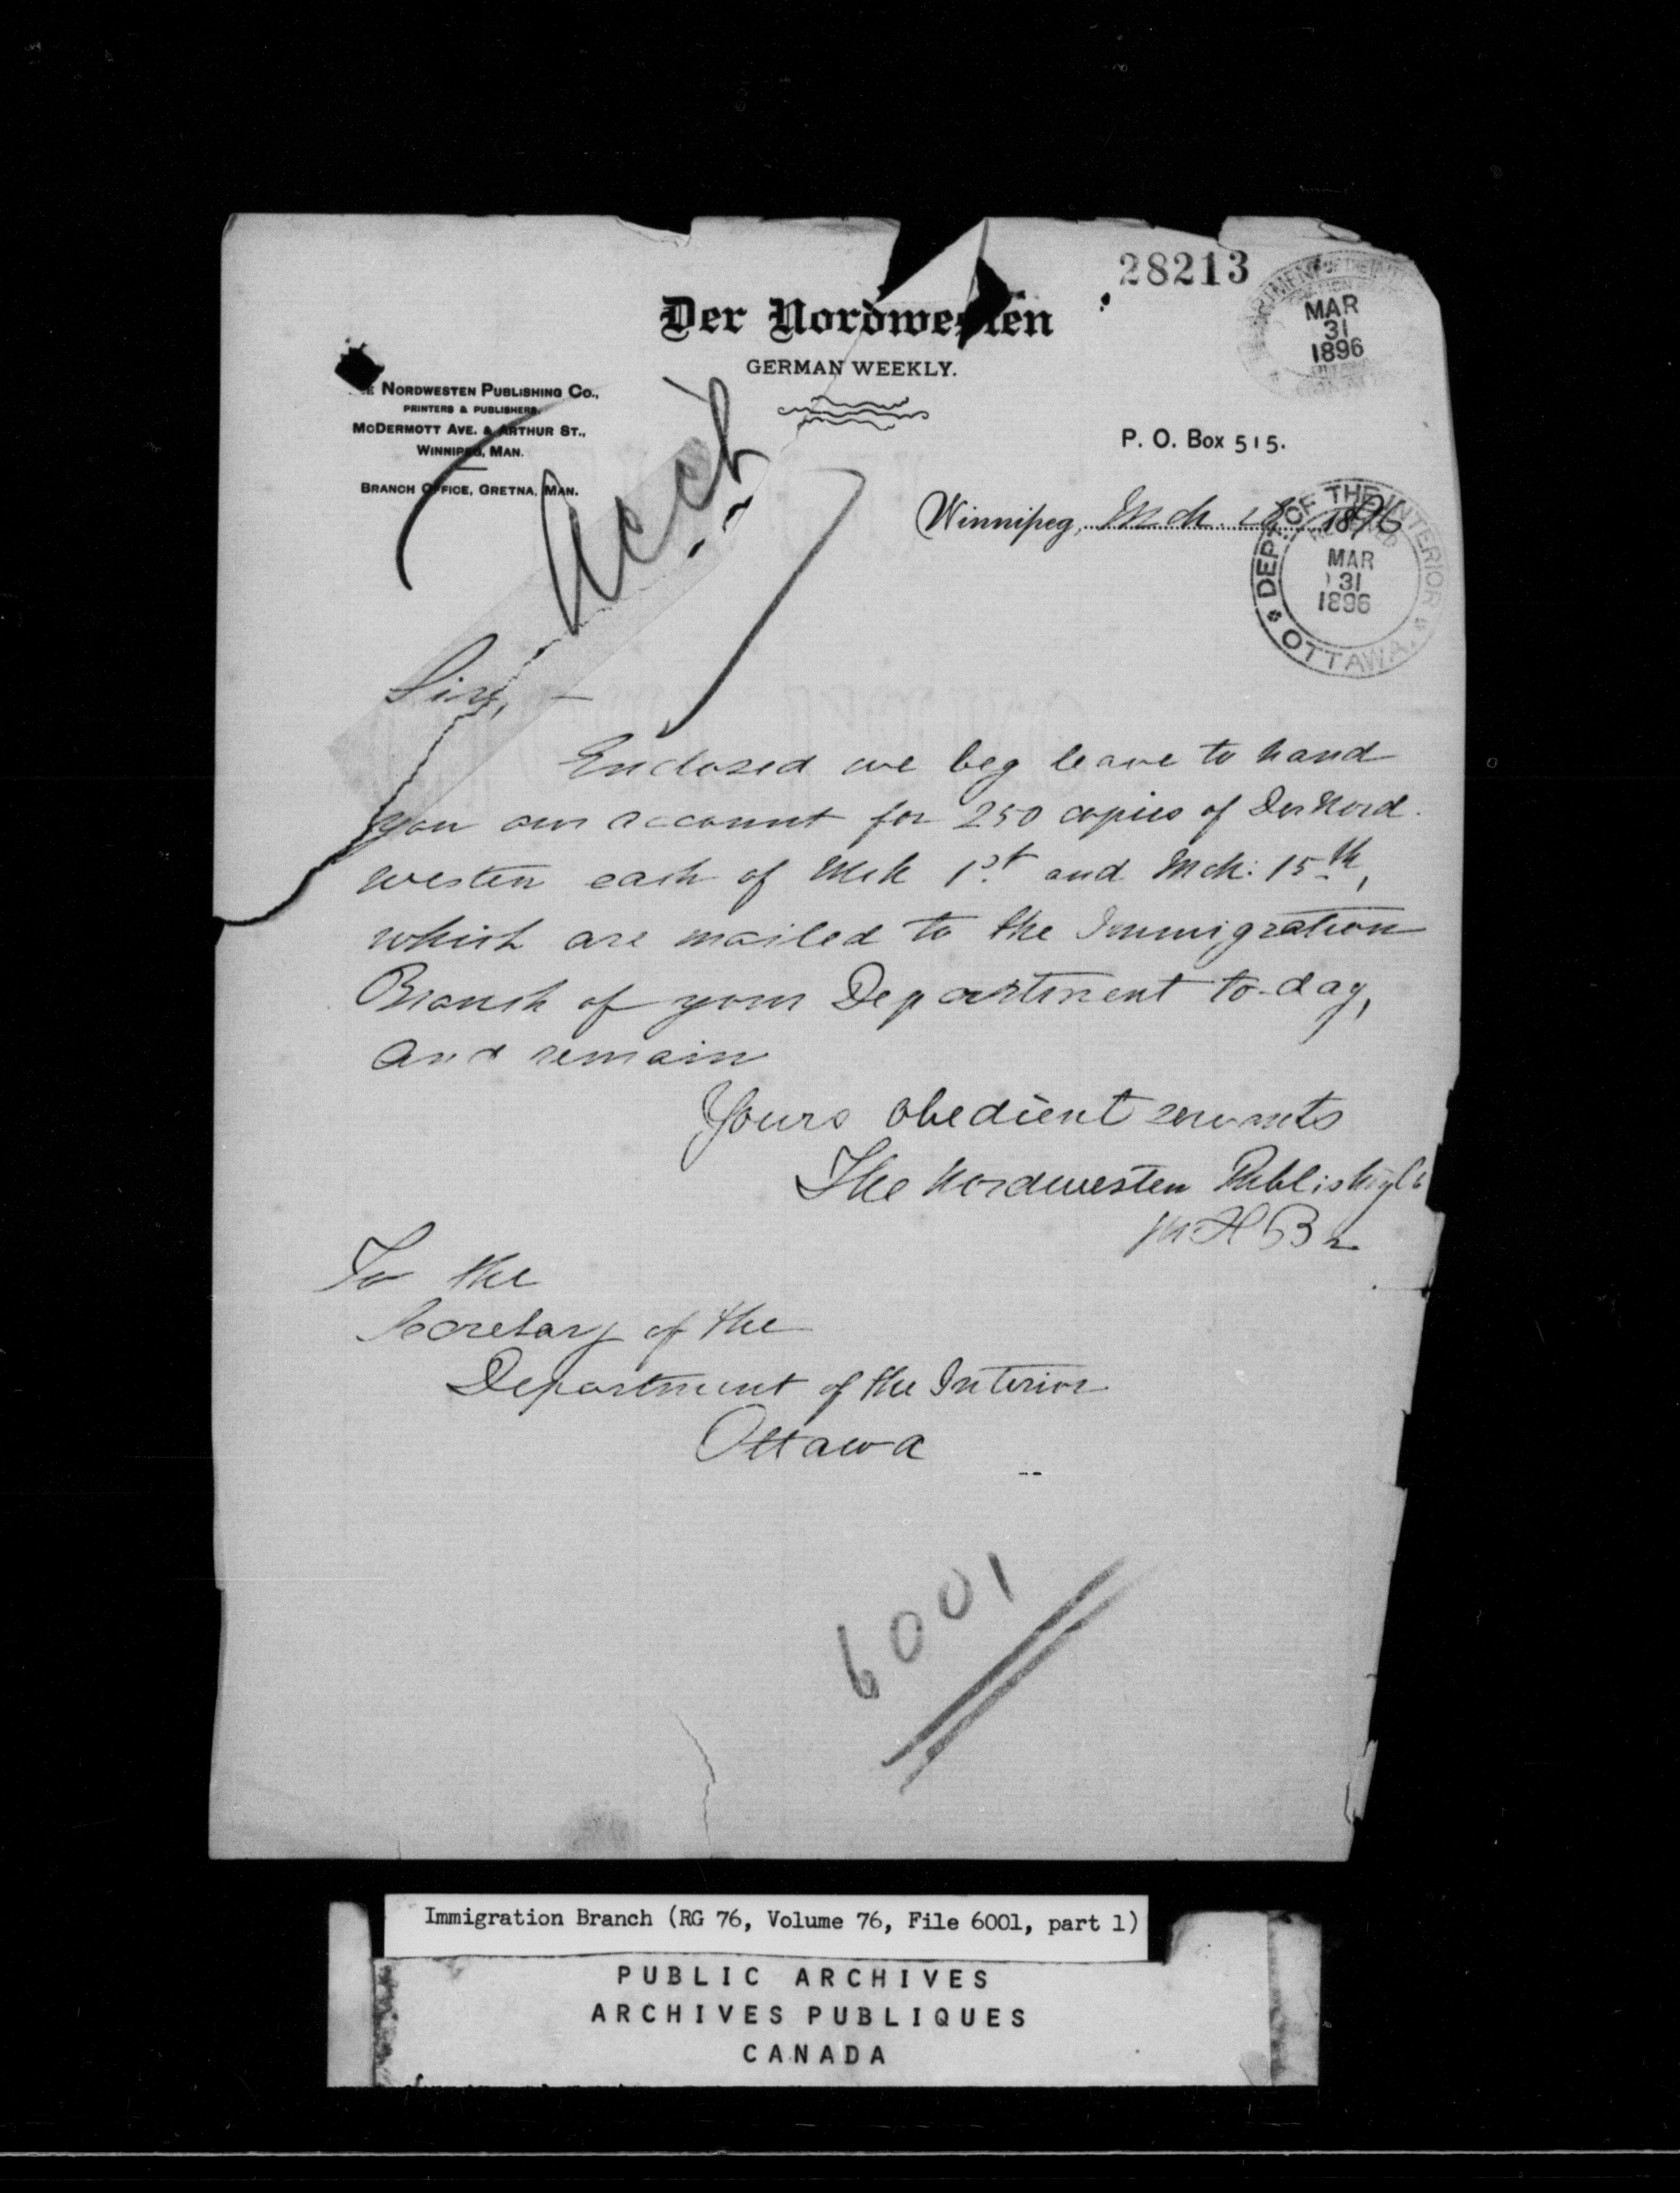 28213
MAR
31
1896
Der Nordwesten
GERMAN WEEKLY.
NORDWESTEN PUBLISHING CO.,
PRINTERS & PUBLISHERS,
MCDERMOTT AVE. & ARTHUR ST.,
WINNIPEG, MAN.
BRANCH OFFICE, GRETNA, MAN.
Acct
P. O. Box 515.
Winnipeg, Mch 1896
DEPT. OF THE INTERIOR
RECEIVED
MAR
31
1896
OTTAWA.
Sir, —
Enclosed we beg leave to hand
you our account for 250 copies of Der Nord-
westen each of Mch 1st and Mch: 15th,
which are mailed to the Immigration
Branch of your Department to-day,
and remain
Yours obedient servants
The Nordwesten Publishing Co
To the
Secretary of the
Department of the Interior
Ottawa
6001
Immigration Branch (RG 76, Volume 76, File 6001, part 1)
PUBLIC ARCHIVES
ARCHIVES PUBLIQUES
CANADA